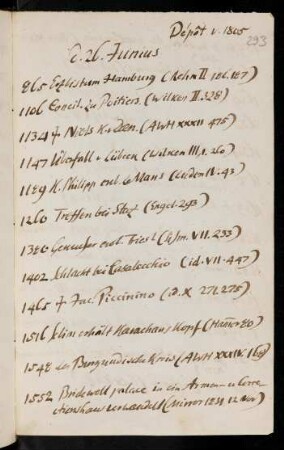 Dépôt v. 1805
293
d. 26. Junius
865 Erzbistum Hamburg (Rehm II 186. 187)
1106 Concil. zu Poitiers. (Wilken II. 328)
1134 † Niels K. v. Dän. (AWH XXXII 475)
1147 Überfall v. Lübeck (Wilken III, 1. 260)
1189 K. Philipp erob. le Mans (IV. 43)
1260 Treffen bei (Engel. 293)
1380 Genueser erob. Triest (Sism. VII. 233)
1402 Schlacht bei Casalecchio (id. VII. 447)
1465 † Jac. Piccinino (id. X 271. 275)
1516 Selim erhält Kopf (Ham̄er 80)
1548 der Burgundische Kreis (AWH XXXIV. 169)
1552 Bridewell palace in ein Armen- u Corre
ctionshaus verwandelt (Mirror 1831 12 Nov)